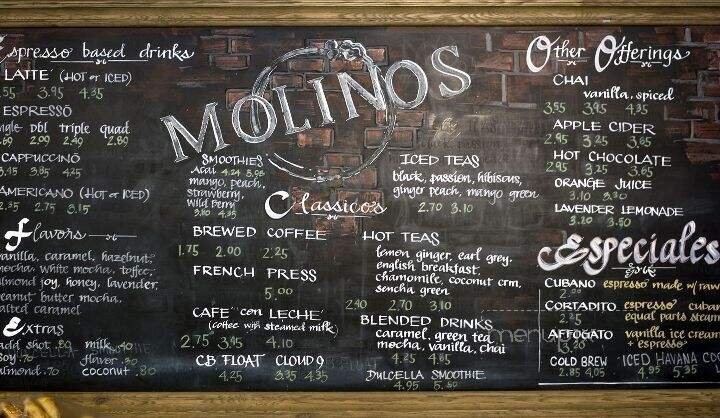 Espresso based drinks
LATTE (HOT or ICED)
3.95 4.35
ESPRESSO
dbl triple quad
2.09 2.49 2.89
CAPPUCCINO
3.95 4.35
AMERICANO (HOT or ICED)
2.35 2.75 3.15
Flavors
vanilla, caramel, hazelnut,
mocha, white mocha, toffee,
almond joy, honey, lavender,
peanut butter mocha,
salted caramel
Extras
add shot .80 milk .40
soy .70 flavor .80
almond .70 coconut .80
MOLINOS
SMOOTHIES
Acai 4.24 5.96
mango, peach,
strawberry,
Wild Berry
3.80 4.35
ICED TEAS
black, passion, hibiscus,
ginger peach, mango green
2.70 3.10
Classicos
BREWED COFFEE
1.75 2.00 2.25
FRENCH PRESS
5.00
CAFE "con LECHE"
(coffee with steamed milk)
2.75 3.45 4.10
CB FLOAT CLOUD 9
4.25 3.75 4.35
HOT TEAS
lemon ginger, earl grey,
english breakfast,
chamomile, coconut crm,
sencha green
2.40 2.70 3.10
BLENDED DRINKS
caramel, green tea
mocha, vanilla, chai
4.25 4.85
DULCELLA SMOOTHIE
4.95
Other Offerings
CHAI
vanilla, spiced
3.55 3.95 4.35
APPLE CIDER
2.95 3.25 3.65
HOT CHOCOLATE
2.95 3.25 3.65
ORANGE JUICE
3.10 3.30
LAVENDER LEMONADE
3.20 3.50
Especiales
CUBANO espresso made w/ raw
CORTADITO espresso + cuban
equal parts steam
AFFOGATO vanilla ice cream
+ espresso
COLD BREW ICED HAVANA
2.85 4.05 4.95 5.35